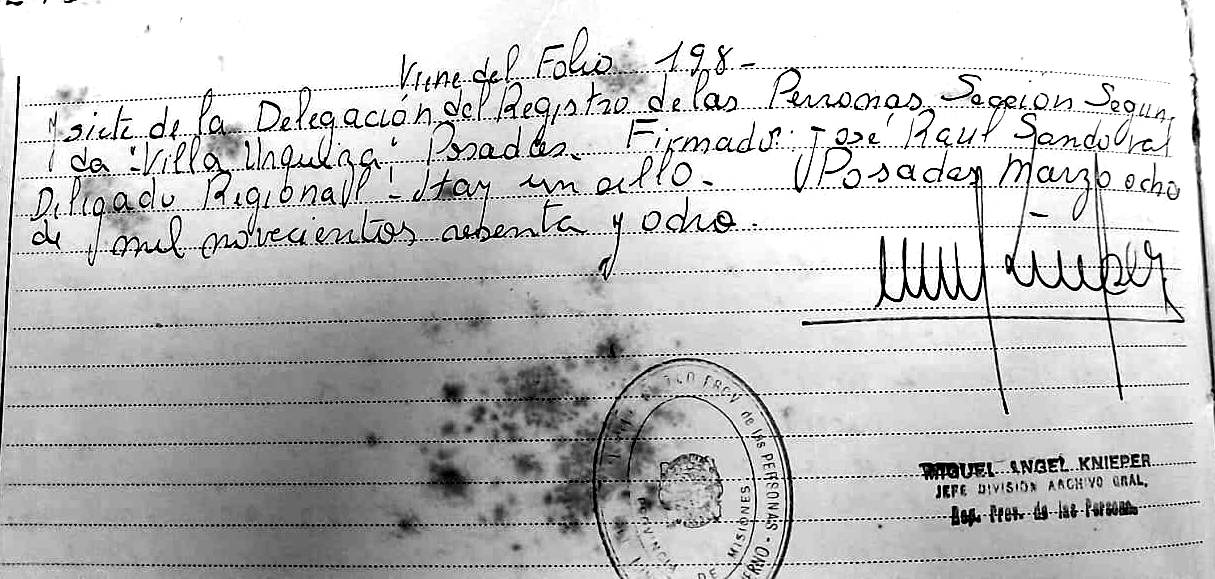 Viene del Folio 198-
y siete de la Delegación del Registro de las Personas Sección Segun
da "Villa Urquiza" Posadas. Firmado: José Raul Sandoval
Delegado Regional - Hay un sello. Posadas, Marzo ocho
de mil novecientos sesenta y ocho.
PROV de las PERSONAS
PROVINCIA DE MISIONES
MIGUEL ANGEL KNIEPER
JEFE DIVISION ARCHIVO GRAL.
Reg. Prov. de las Personas